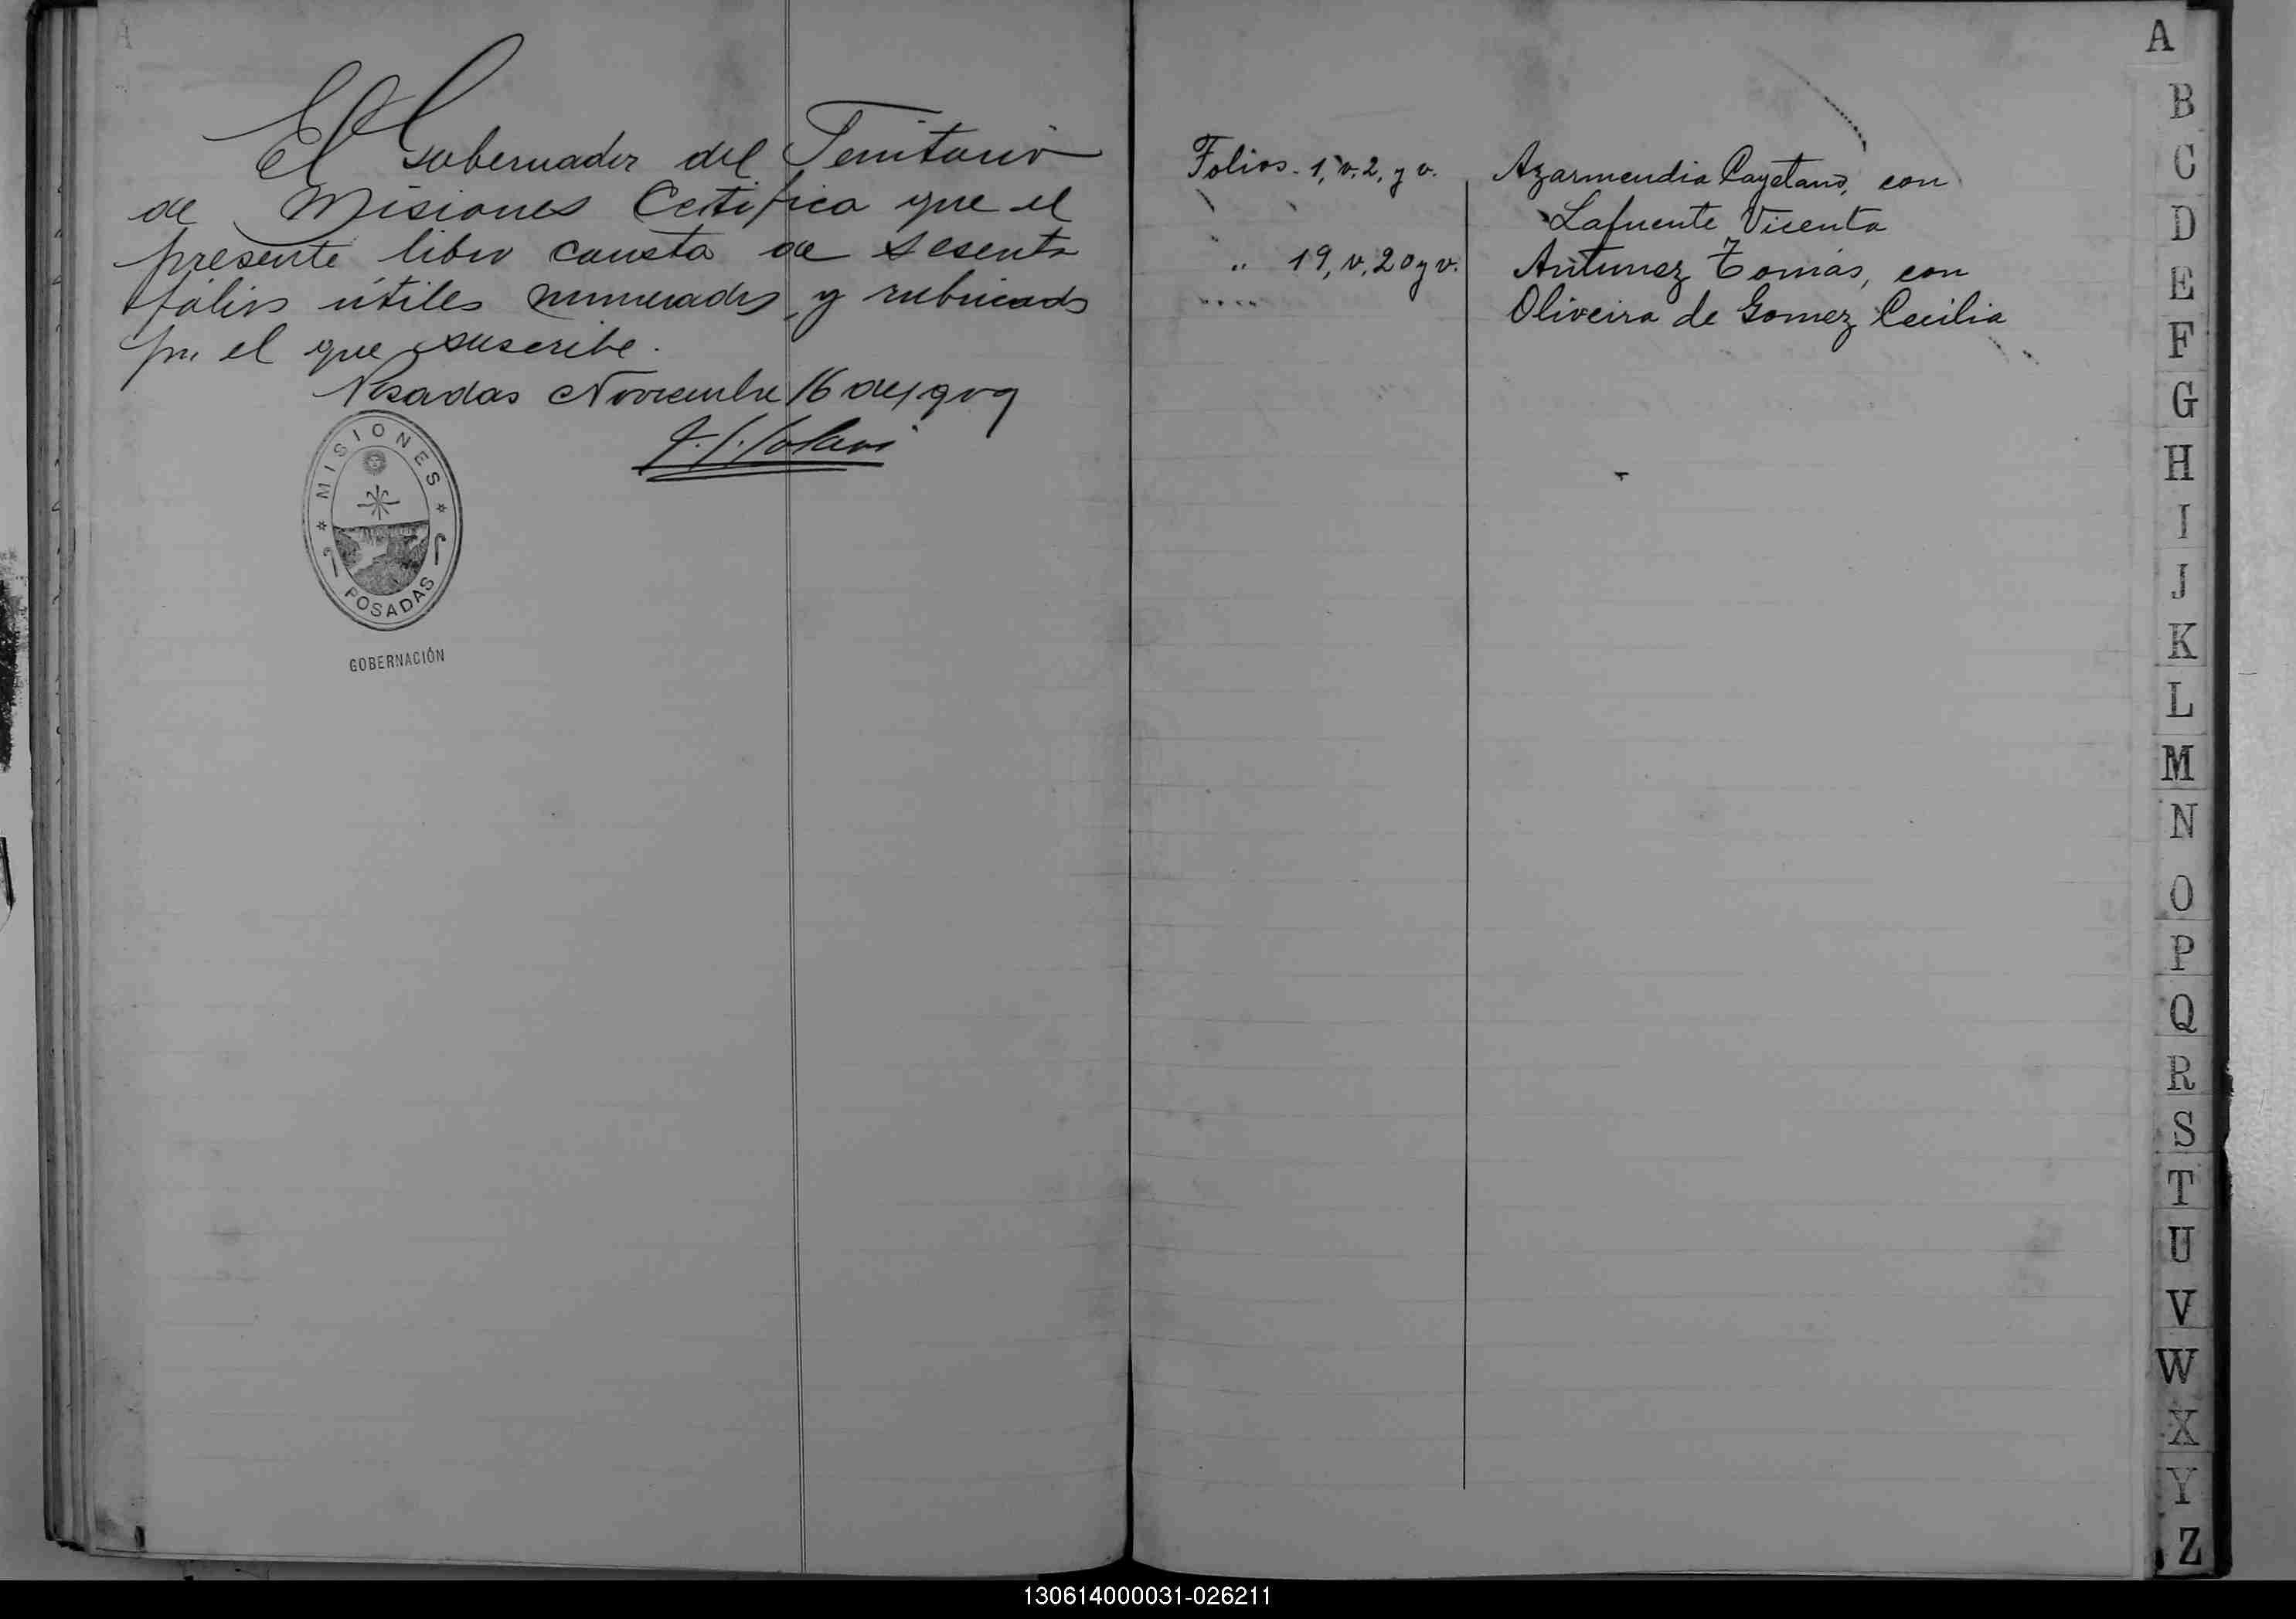 El Gobernador del Territorio
de Misiones Certifica que el
presente libro consta de sesenta
fólios útiles numerados y rubricados
por el que suscribe.
Posadas Noviembre 16 de 1909
MISIONES
POSADAS
GOBERNACIÓN
Folios. 1, v. 2, y v. Azarmendia Cayetano, con
Lafuente Vicenta
" 19, v, 20 y v. Antunez Tomás, con
Oliveira de Gomez Cecilia
A
B
C
D
E
F
G
H
I
J
K
L
M
N
O
P
Q
R
S
T
U
V
W
X
Y
Z
130614000031-026211